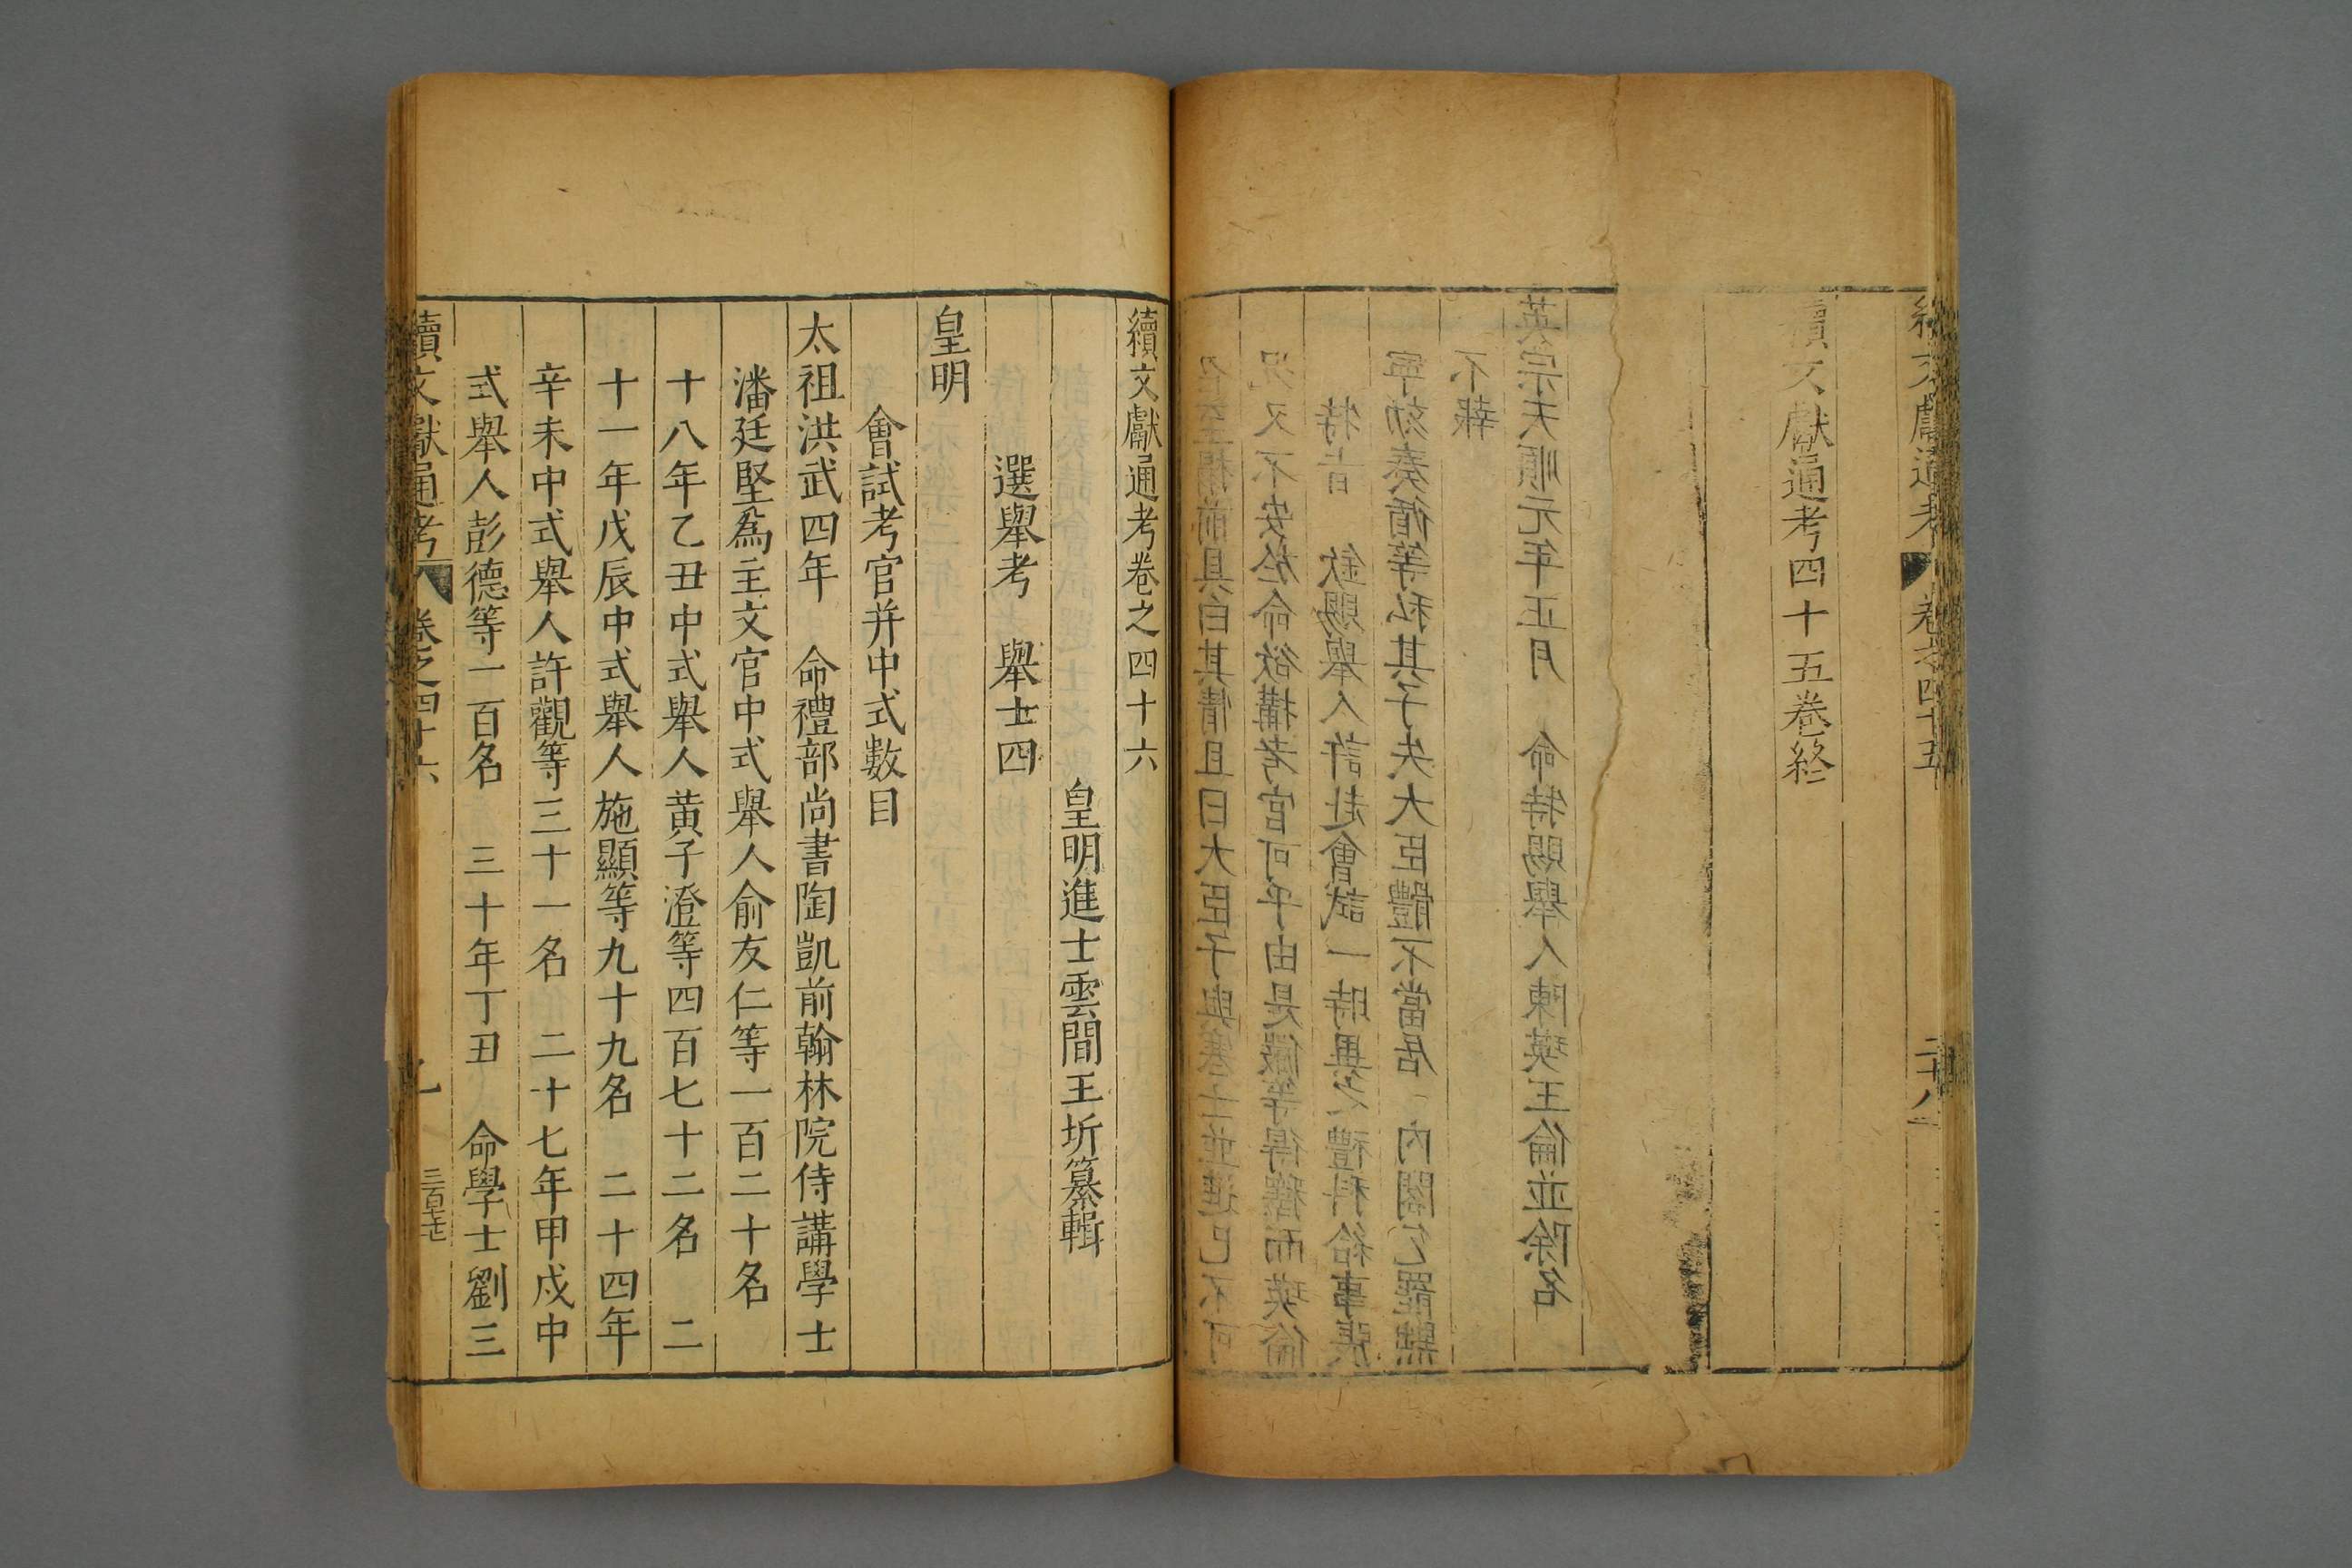 續文獻通考四十五卷終
英宗天順元年正月　命特賜舉人陳瑛王倫並除名
不報
寧劾奏循等私其子失大臣體不當居　內閣乞罷黜
特旨　欽賜舉人許赴會試一時異之禮科給事張
況又不安於命欲搆考官可乎由是儼等得釋而瑛倫
至榻前具白其情且曰大臣子與寒士並進已不可
續文獻通考卷之四十六
皇明進士雲間王圻纂輯
選舉考　舉士四
皇明
會試考官并中式數目
太祖洪武四年　命禮部尚書陶凱前翰林院侍講學士
潘廷堅爲主文官中式舉人俞友仁等一百二十名
十八年乙丑中式舉人黄子澄等四百七十二名　二
十一年戊辰中式舉人施顯等九十九名　二十四年
辛未中式舉人許觀等三十一名　二十七年甲戌中
式舉人彭德等一百名　三十年丁丑　命學士劉三
續文獻通考　卷之四十六　一